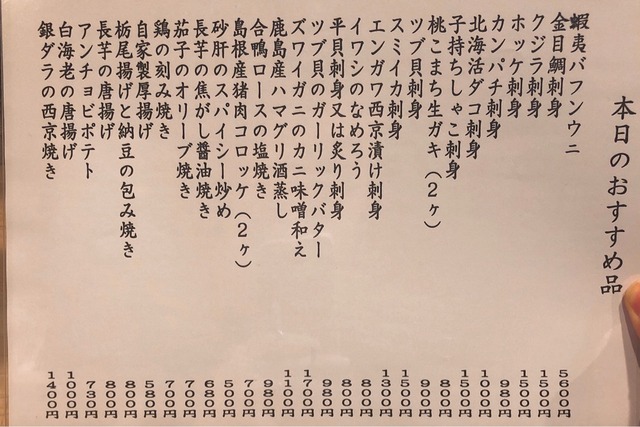 本日のおすすめ品
蝦夷バフンウニ 5600円
金目鯛刺身 1500円
クジラ刺身 1500円
ホッケ刺身 980円
カンパチ刺身 1000円
北海活ダコ刺身 1500円
子持ちしゃこ刺身 800円
桃こまち生ガキ(2ヶ) 900円
ツブ貝刺身 800円
スミイカ刺身 1500円
エンガワ西京漬け刺身 1300円
イワシのなめろう 800円
平貝刺身又は炙り刺身 800円
ツブ貝のガーリックバター 980円
ズワイガニのカニ味噌和え 1700円
鹿島産ハマグリ酒蒸し 1100円
合鴨ロースの塩焼き 980円
島根産猪肉コロッケ(2ヶ) 700円
砂肝のスパイシー炒め 500円
長芋の焦がし醤油焼き 680円
茄子のオリーブ焼き 700円
鶏の刻み焼き 700円
自家製厚揚げ 580円
栃尾揚げと納豆の包み焼き 800円
長芋の唐揚げ 800円
アンチョビポテト 730円
白海老の唐揚げ 1000円
銀ダラの西京焼き 1400円